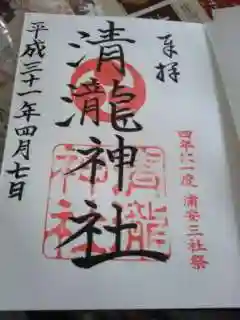 奉拝
四年に一度 浦安三社祭
清瀧神社
平成三十一年四月七日